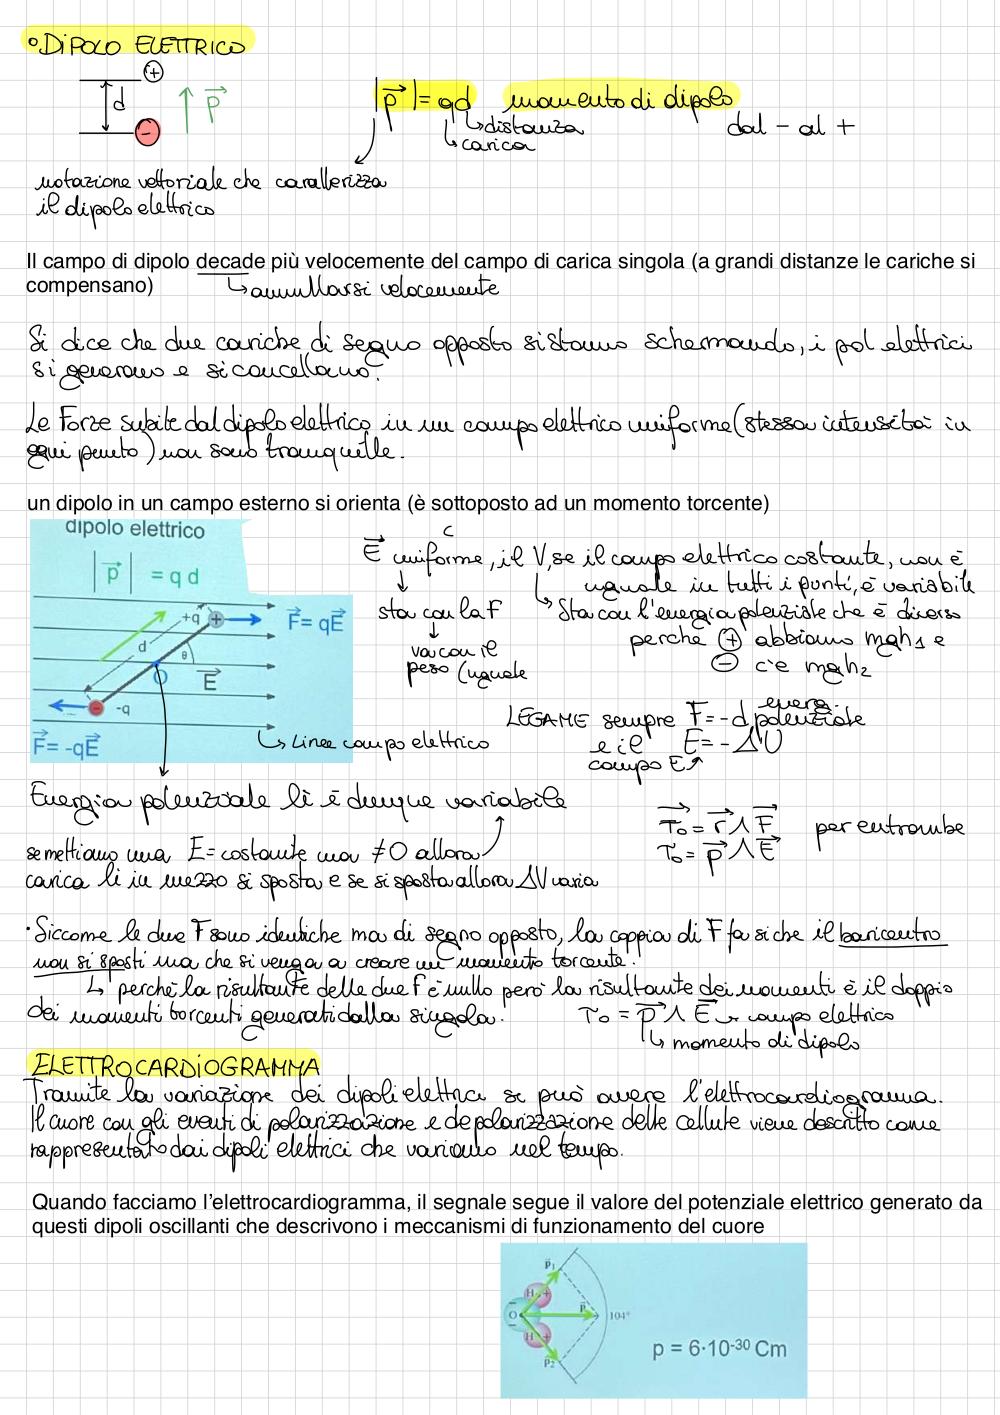 °DIPOLO ELETTRICO
+
d
-
p
|p| = qd momento di dipolo
↳ distanza
↳ carica
dal - al +
notazione vettoriale che caratterizza
il dipolo elettrico
Il campo di dipolo decade più velocemente del campo di carica singola (a grandi distanze le cariche si
compensano)
↳ annullarsi velocemente
Si dice che due cariche di segno opposto si stanno schermando, i pol elettrici
si generano e si cancellano.
Le Forze subite dal dipolo elettrico in un campo elettrico uniforme (stessa intensità in
ogni punto) non sono tranquille.
un dipolo in un campo esterno si orienta (è sottoposto ad un momento torcente)
dipolo elettrico
|p| = q d
+q
+
F= qE
d
θ
O
E
-
-q
F= -qE
↳ Linee campo elettrico
E uniforme, il V, se il campo elettrico costante, non è
uguale in tutti i punti, è variabile
sta con la F
↳ Sta con l'energia potenziale che è diversa
perché + abbiamo mgh1 e
- c'è mgh2
va con il
peso (uguale
LEGAME sempre F= -d energ. potenziale
e il E= -ΔU
campo E
Energia potenziale lì è dunque variabile
se mettiamo una E= costante ma ≠0 allora
carica lì in mezzo si sposta e se si sposta allora ΔV varia
τo = r ∧ F per entrambe
τo = p ∧ E
· Siccome le due F sono identiche ma di segno opposto, la coppia di F fa si che il baricentro
non si sposti ma che si venga a creare un momento torcente.
↳ perché la risultante delle due F è nullo però la risultante dei momenti è il doppio
dei momenti torcenti generati dalla singola.
τo = p ∧ E → campo elettrico
↳ momento di dipolo
ELETTROCARDIOGRAMMA
Tramite la variazione dei dipoli elettrici si può avere l'elettrocardiogramma.
Il cuore con gli eventi di polarizzazione e depolarizzazione delle cellule viene descritto come
rappresentato dai dipoli elettrici che variano nel tempo.
Quando facciamo l'elettrocardiogramma, il segnale segue il valore del potenziale elettrico generato da
questi dipoli oscillanti che descrivono i meccanismi di funzionamento del cuore
p1
H +
O
p
104°
H +
p2
p = 6·10-30 Cm